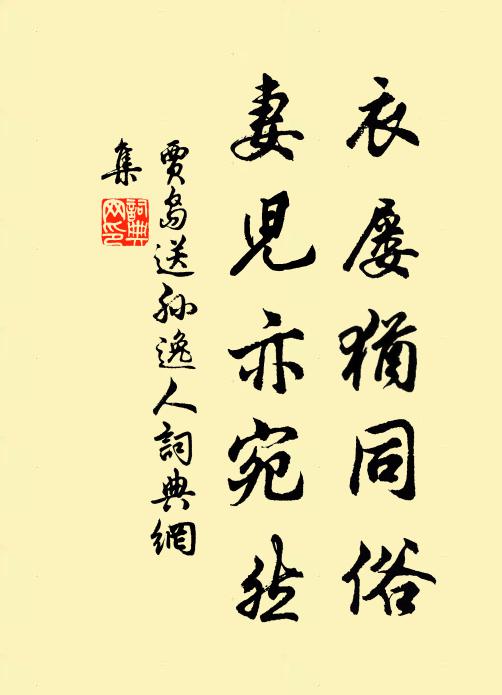 衣屢猶同俗
妻児亦宛然
賈島送孫逸人詞典網
集
詞典網印